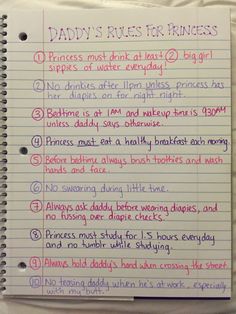 DADDY'S RULES FOR PRINCESS
① Princess must drink at least ② big girl
sippies of water everyday!
② No drinkies after 11pm unless princess has
her diapers on for night night.
③ Bedtime is at 1AM and wakeup time is 930AM
unless daddy says otherwise.
④ Princess must eat a healthy breakfast each morning.
⑤ Before bedtime always brush toothies and wash
hands and face.
⑥ No swearing during little time.
⑦ Always ask daddy before wearing diapies, and
no fussing over diapie checks.
⑧ Princess must study for 1.5 hours everyday
and no tumblr while studying.
⑨ Always hold daddy's hand when crossing the street.
⑩ No teasing daddy when he's at work, especially
with my butt.